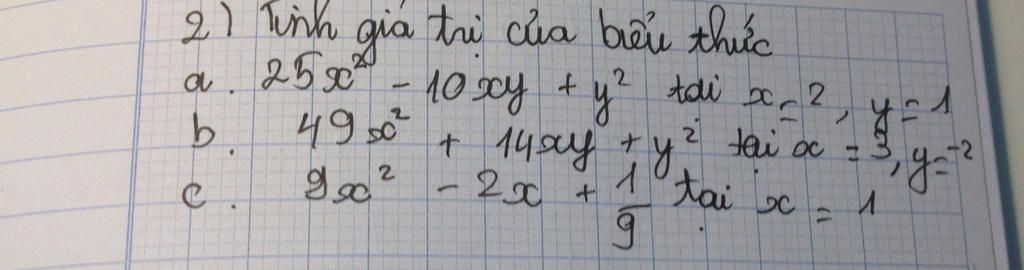 2) Tính giá trị của biểu thức
a. 25x² - 10xy + y² tại x = 2, y = 1
b. 49x² + 14xy + y² tại x = 3, y = -2
c. 9x² - 2x + 1/9 tại x = 1